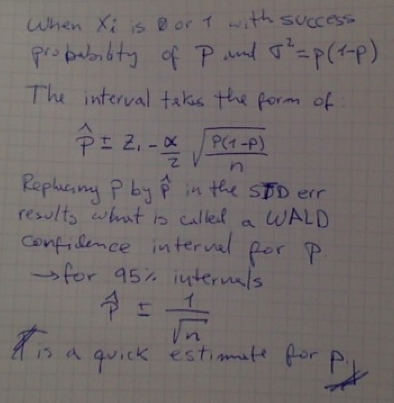 When Xi is 0 or 1 with success
probability of P and σ²=p(1-p)
The interval takes the form of:
p̂ ± Z₁-α/2 √(P(1-p)/n)
Replacing P by p̂ in the STD err
results what is called a WALD
confidence interval for p
→for 95% intervals
p̂ ± 1/√n
is a quick estimate for p.